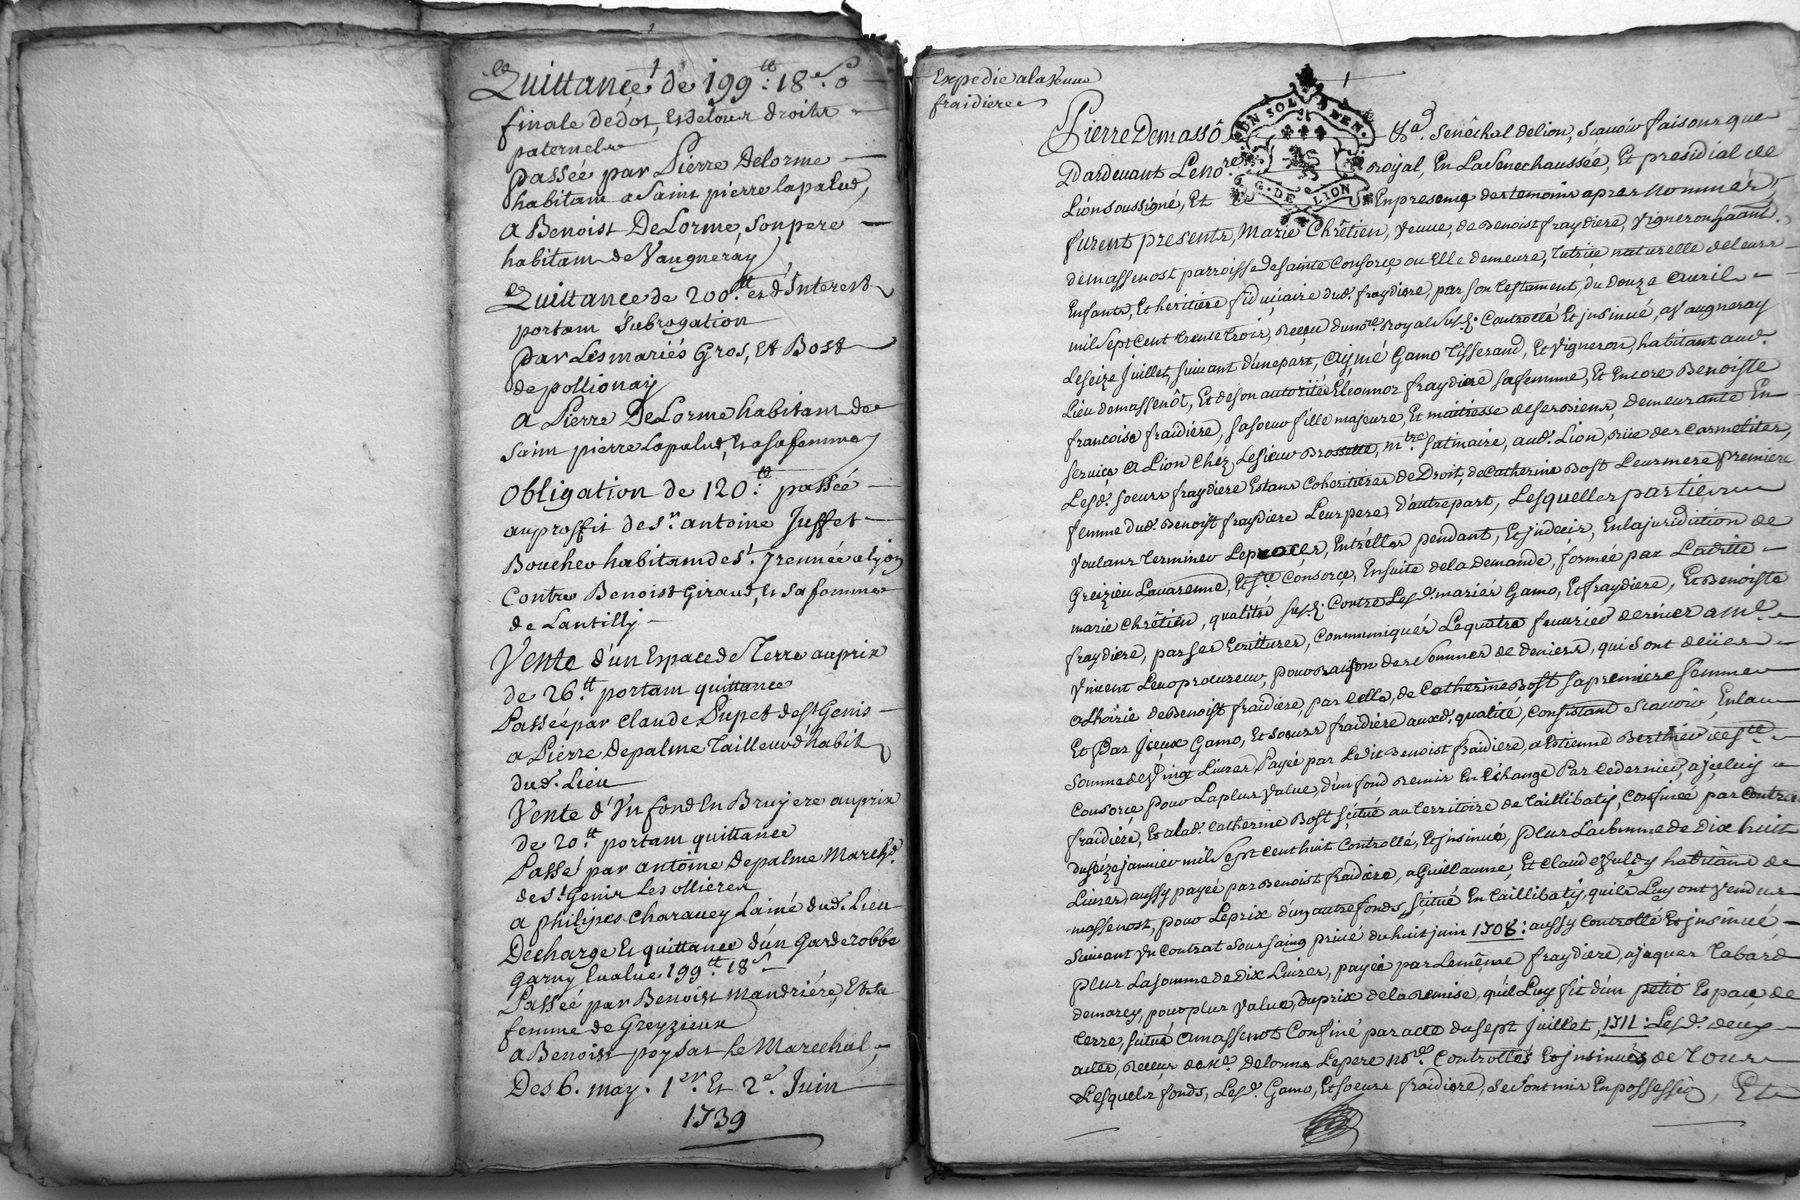 Quittance de 199.tt 18.s
finale de dot, et de tous droits
paternels
passée par Pierre Delorme
habitant a Saint pierre lapalud,
a Benoist DeLorme, son pere
habitant de Vaugneray
Quittance de 200.tt et d'Interest
portant subrogation
par Les mariés Gros, Et Bost
de pollionay
a Pierre DeLorme habitant de
saint pierre Lapalud, Et a sa femme
obligation de 120.tt passée
au proffit de Sr. antoine Juffet
Boucher habitant de St. Irennée a Lyon
Contre Benoist Giraud, Et sa femme
de Lantilly
Vente d'un Espace de Terre au prix
de 26.tt portant quittance
Passée par Claude Pupet de St Genis
a Pierre Depalme Tailleur d'habit
dud. Lieu
Vente d'Un fond En Bruyere au prix
de 20.tt portant quittance
Passé par antoine Depalme Marchd.
de St. Genis Les ollieres
a philipes Charavey Lainé dud. Lieu
Decharge Et quittance d'un Garderobbe
garny Evalué 199.tt 18.s
Passée par Benoist Mandriére, Et sa
femme de Greyzieux
a Benoist poysat le Marechal,
Des 6. may. 1er. Et 2e. Juin
1739
Expedié a la Veuve
fraidiere
Pierre Demassô Sénêchal de Lion, Sçavoir faisons que
Pardevant Le nore. royal, En La Senechaussée, Et presidial de
Lion soussigné, Et En presence des temoins apres Nommés,
furent presents, Marie Chrêtien, veuve, de Benoist fraydiere, Vigneron
de massenost parroisse de Sainte Consorce ou Elle demeure, tutrice naturelle de leurs
Enfants, Et heritiere fiduciaire dud. fraydiere, par son testament, du douze avril
mil Sept Cent trente trois, reçu du nore. royal Controllé Et insinué, a Vaugneray
Le seize Juillet, suivant d'une part, Aymé Gamo Tisserand, Et Vigneron, habitant aud.
Lieu de massenôt, Et de son autorité Eleonnor fraydiere sa femme, Et Encore Benoiste
francoise fraidiere, sa soeur fille majeure, Et maitresse de ses Biens, demeurante En
service a Lion chéz Le sieur Brossette, mtre. satinaire, aud. Lion, rüe des Carmelites,
Lesd. soeurs fraydiere Etans Coheritieres de Droit, de Catherine Bost Leur mere premiere
femme dud. Benoist fraydiere Leur pere, d'autre part, Lesquelles parties
Voulans terminer Le procés, Entr'elles pendant, Et indecis, En la juridiction de
Greizieu Lavarenne, Et Ste Consorce, Ensuite de la Demande, formée par Ladite
marie Chrêtien, qualité Contre Lesd. mariés Gamo, Et fraydiere, Et Benoiste
fraydiere, par ses Ecritures, Communiqués Le quatre fevrier dernier a Me.
Vincent Leur procureur, pour raison des sommes de deniers, qui sont deües
a l'hoirie de Benoist fraidiere, par Celle, de Catherine Bost sa premiere femme
Et Par Iceux Gamo, Et soeurs fraidiere auxd. qualité, Consistant Sçavoir, En la
somme de Vingt Livres Payée par Ledit Benoist fraidiere, a Estienne Berthier de Ste
Consorce pour La plus Value, d'un fond remis En Echange Par ce dernier, a icelluy
fraidiere, Et a lad. Catherine Bost situé au territoire de Taillibaty, Confiné par Contrat
du seize janvier mil Sept Cent huit Controllé, Et insinué, plus La somme de Dix huit
Livres aussy payée par Benoist fraidiere, a Guillaume, Et Claude habitans de
massenost, pour Le prix d'un autre fonds, situé En Taillibaty, qu'ils Luy ont Vendus
suivant Un Contrat sous saing privé du huit juin 1708: aussy Controllé Et insinué
plus La somme de Dix Livres, payée par Le même fraydiere, a jaques Tabard
de marcy, pour plus Value, du prix de la remise, qu'il Luy fit d'un petit Espace de
terre, situé a massenot Confiné par acte du sept Juillet, 1711: Lesd. deux
actes, reçus de Me. Delorme Le pere Nore. Controllés Et insinués de Tous
Lesquels fonds, Lesd. Gamo, Et soeurs fraidiere, se sont mis En possession, Et